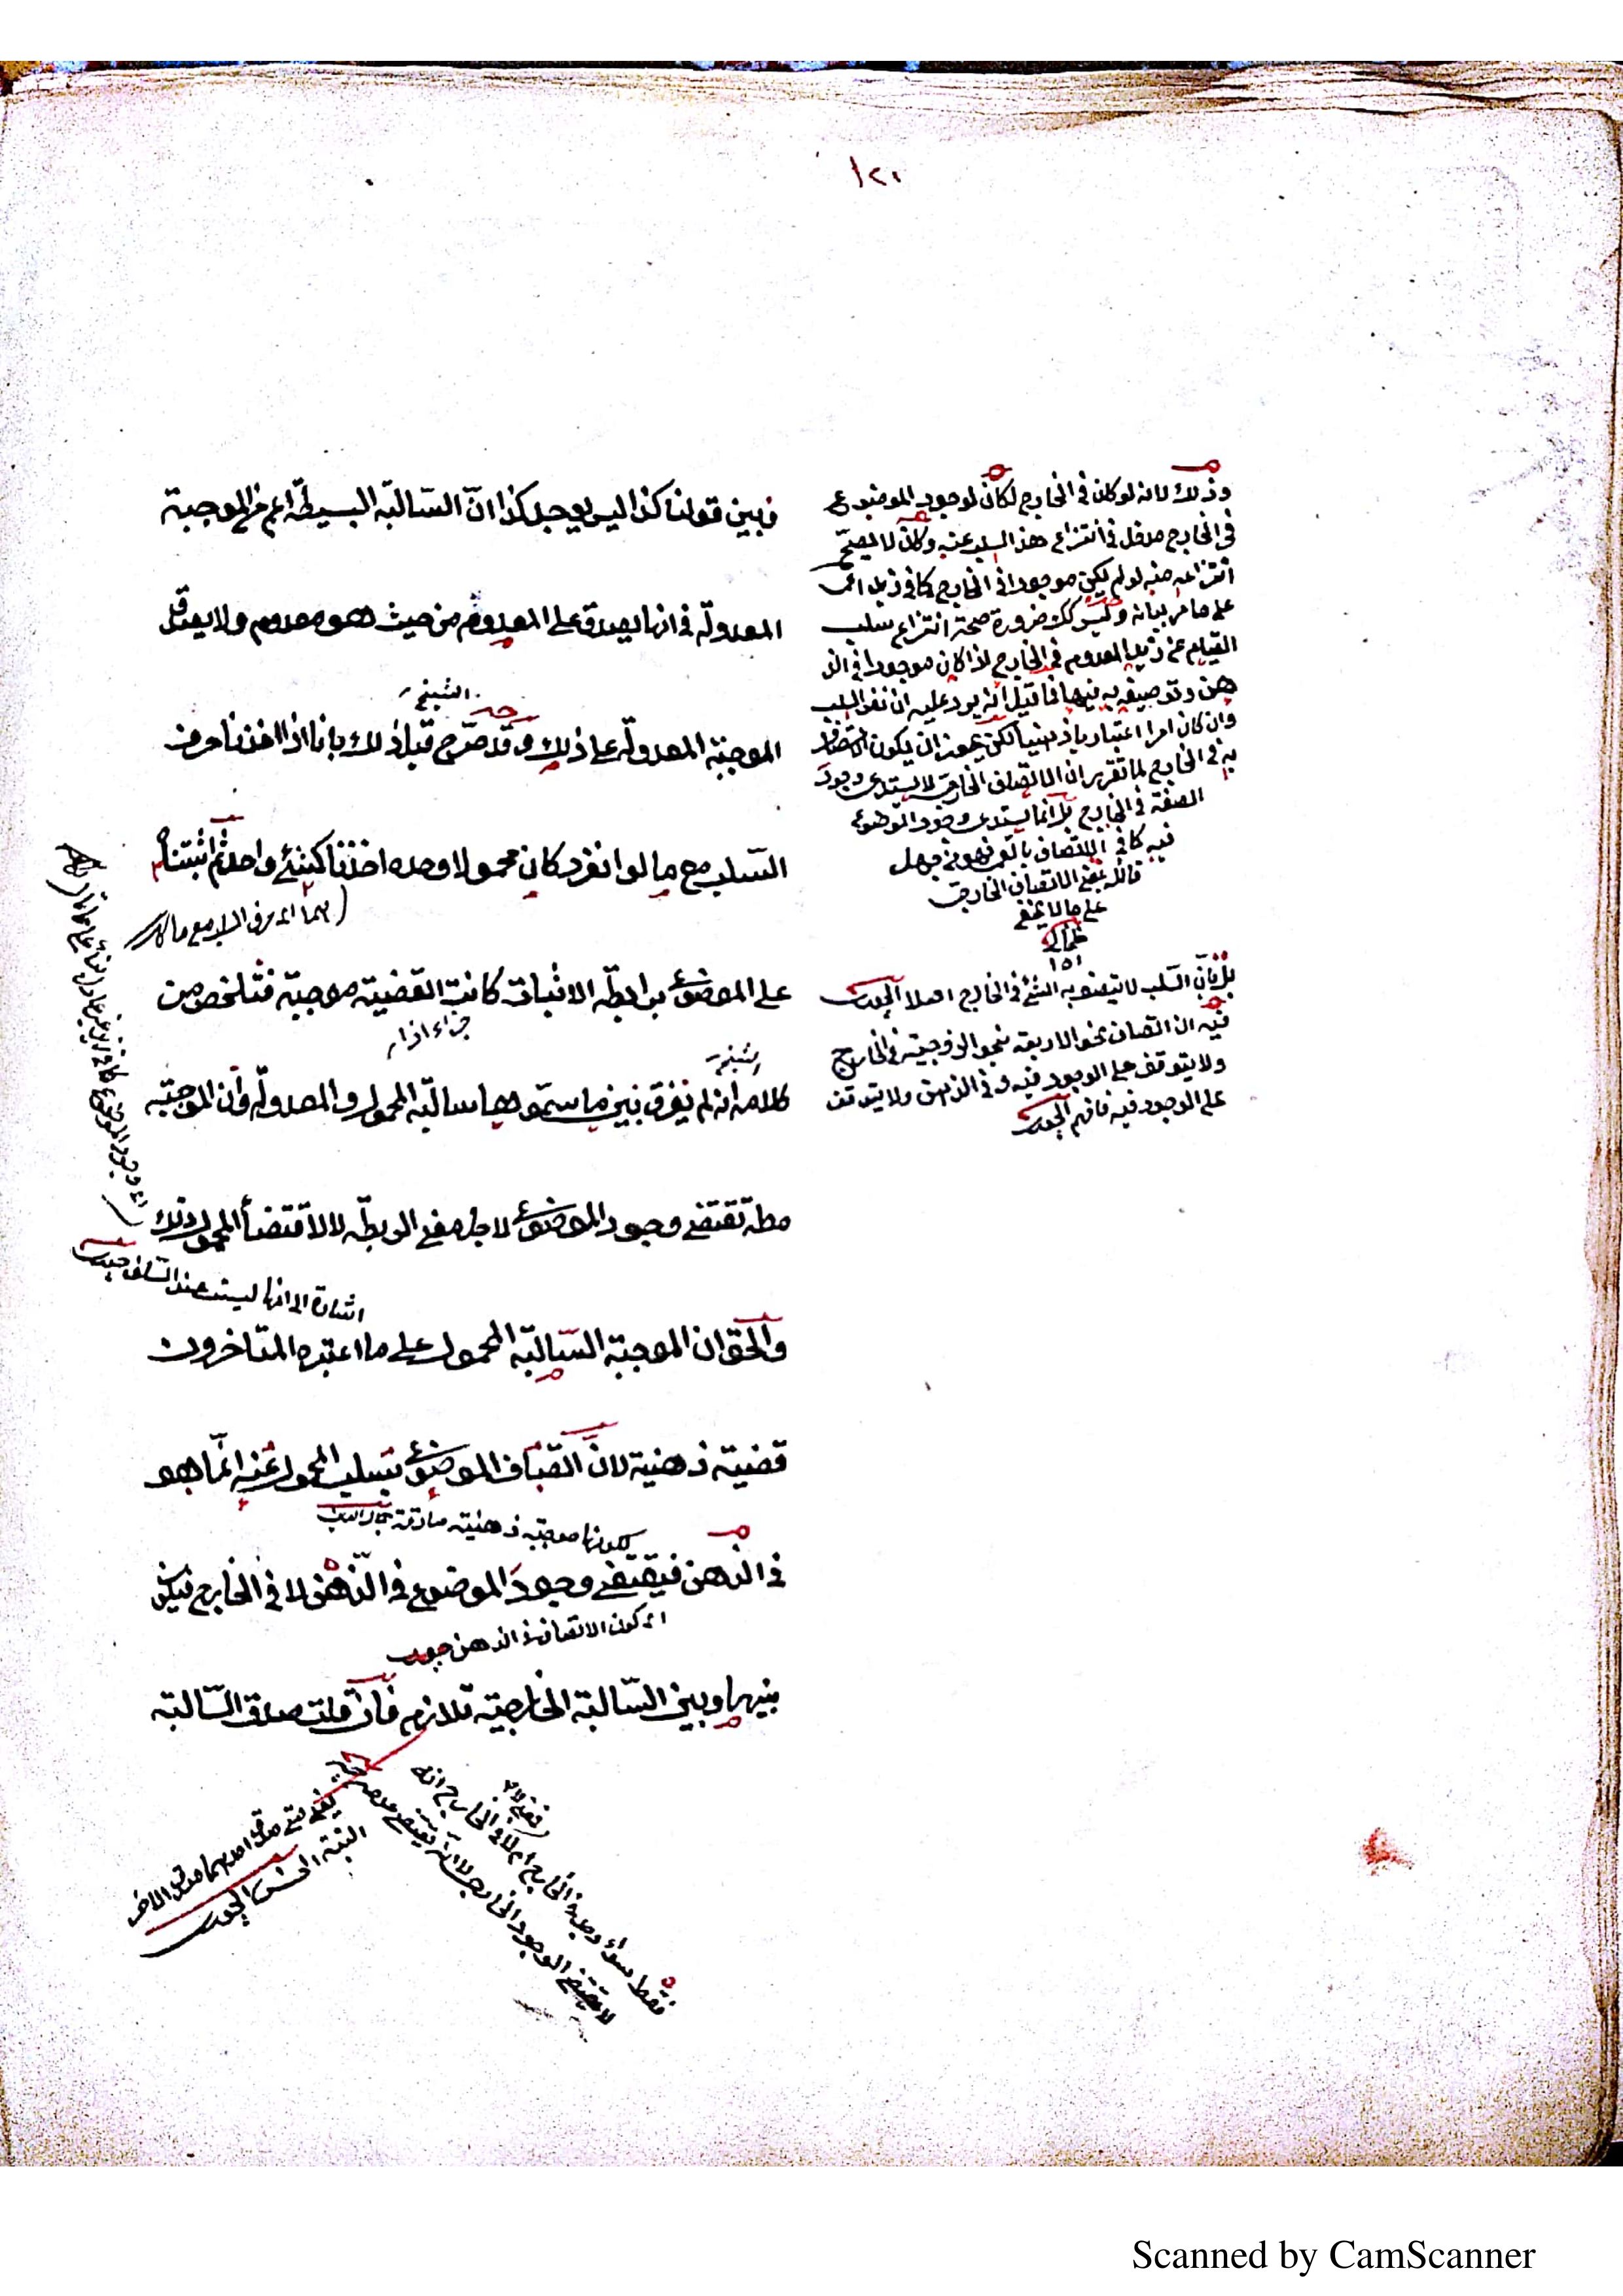 ١٢٠
فبين قولنا كذا ليس يوجد كذا انّ السّالبة البسيطة اعم من الموجبة
المعدولة في انها يصدق على المعدوم من حيث هو معدوم ولا يصدق
الشيخ
الموجبة المعدولة على ذلك وقد صرّح قبل ذلك بانا اذا اخذنا حرف
السّلب مع ما لو انفرد كان محمولا وحده اخذنا كشئ واحد ثم اثبتناه
على الموضوع برابطة الاثبات كانت القضية موجبة فتلخص من
جزاء اذا
الشيخ
كلامه انه لم يفرق بين ما سمّوها سالبة المحمول والمعدولة وان الموجبة
مطلقا تقتضى وجود الموضوع لاجل معنى الربطة لا لاقتضاء المحمول ذلك
اشارة الى انها ليست عند
والحق ان الموجبة السّالبة المحمول على ما اعتبره المتاخرون
قضية ذهنية لانّ اتصاف الموضوع بسلب المحمول عنه انّما هو
لكونها موجبة ذهنية صادقة
في الذهن فيقتضى وجود الموضوع في الذّهن لا في الخارج فيكون
اى كون الاتصاف في الذهن
بينها وبين السّالبة الخارجية تلازم فان قلت صدق السّالبة
وذلك لانه لو كان في الخارج لكان لوجود الموضوع
في الخارج مدخل في انتزاع هذا السلب عنه وكان لا يصحّ
انتزاعه منه لو لم يكن موجودا في الخارج كما في زيد اعمى
على ما مر بيانه وليس كك ضرورة صحة انتزاع سلب
القيام عن زيد المعدوم في الخارج اذا كان موجودا في الذ
هن وتوصيفه به فيها فما قيل انه يرد عليه ان نفى السلب
وان كان امرا اعتباريا ذهنيا لكن يجوز ان يكون الاتصاف
به في الخارج لما تقرر ان الاتصاف الخارجى لا يستدعى وجود
الصفة في الخارج بل انما يستدعى وجود الموضوع
فيه كما في الاتصاف بالعمى فهو من جهل
قائله بمعنى الاتصاف الخارجى
على ما لا يخفى
١٥١
بل فانّ السّلب لا يتصف به الشئ في الخارج اصلا
فيه ان اتصاف نحو الاربعة بنحو الزوجية في الخارج
ولا يتوقف على الوجود فيه وفي الذهن ولا يتوقف
على الوجود فيه فافهم
يعنى متى صدق احدهما صدق الاخر
البتة
فقط سواء وجد في الخارج ام لا
لا يقتضى الوجود الخارجى لا انه يقتضى عدمه